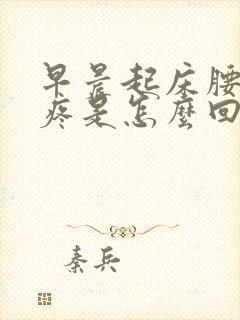 早晨起床腰
疼是怎麼回
秦兵